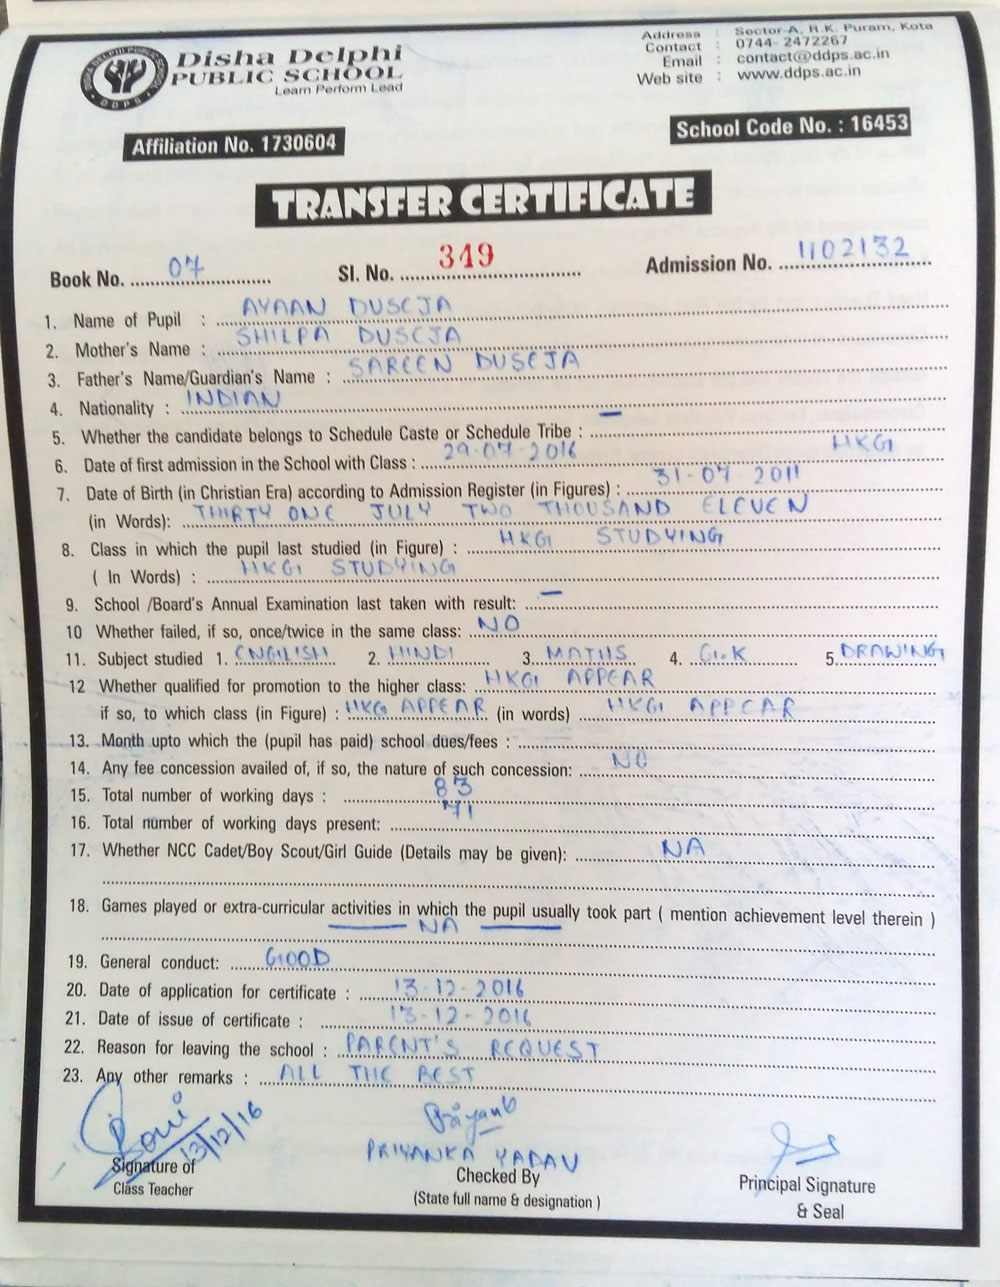 Disha Delphi
PUBLIC SCHOOL
Learn Perform Lead
DISHA DELPHI PUBLIC SCHOOL
DDPS
Address : Sector-A, R.K. Puram, Kota
Contact : 0744- 2472267
Email : contact@ddps.ac.in
Web site : www.ddps.ac.in
Affiliation No. 1730604
School Code No. : 16453
TRANSFER CERTIFICATE
Book No. 07 Sl. No. 349 Admission No. 1102132
1. Name of Pupil : AYAAN DUSEJA
2. Mother's Name : SHILPA DUSEJA
3. Father's Name/Guardian's Name : SAREEN DUSEJA
4. Nationality : INDIAN
5. Whether the candidate belongs to Schedule Caste or Schedule Tribe : —
6. Date of first admission in the School with Class : 29-07-2016 HKG
7. Date of Birth (in Christian Era) according to Admission Register (in Figures) : 31-07 2011
(in Words): THIRTY ONE JULY TWO THOUSAND ELEVEN
8. Class in which the pupil last studied (in Figure) : HKG STUDYING
( In Words) : HKG STUDYING
9. School /Board's Annual Examination last taken with result: —
10 Whether failed, if so, once/twice in the same class: NO
11. Subject studied 1. ENGLISH 2. HINDI 3. MATHS 4. G.K 5. DRAWING
12 Whether qualified for promotion to the higher class: HKG APPEAR
if so, to which class (in Figure) : HKG APPEAR (in words) HKG APPEAR
13. Month upto which the (pupil has paid) school dues/fees :
14. Any fee concession availed of, if so, the nature of such concession: NO
15. Total number of working days : 83
16. Total number of working days present: 71
17. Whether NCC Cadet/Boy Scout/Girl Guide (Details may be given): NA
18. Games played or extra-curricular activities in which the pupil usually took part ( mention achievement level therein )
— NA —
19. General conduct: GOOD
20. Date of application for certificate : 13-12-2016
21. Date of issue of certificate : 13-12-2016
22. Reason for leaving the school : PARENT'S REQUEST
23. Any other remarks : ALL THE BEST
13/12/16
Priyanka
PRIYANKA YADAV
Signature of
Class Teacher
Checked By
(State full name & designation )
Principal Signature
& Seal